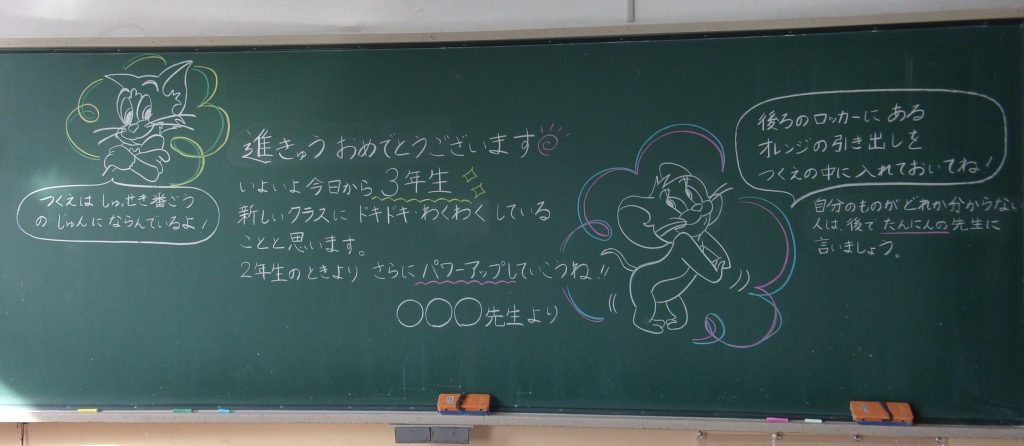 進きゅう おめでとうございます
いよいよ今日から 3年生
新しいクラスに ドキドキ・わくわく している
ことと思います。
2年生のときより さらに パワーアップしていこうね!!
〇〇〇先生より
つくえは しゅっせき番ごう
の じゅんに ならんでいるよ!
後ろのロッカーに ある
オレンジの引き出しを
つくえの中に入れておいてね!
自分のものが どれか分からない
人は、後で たんにんの先生に
言いましょう。